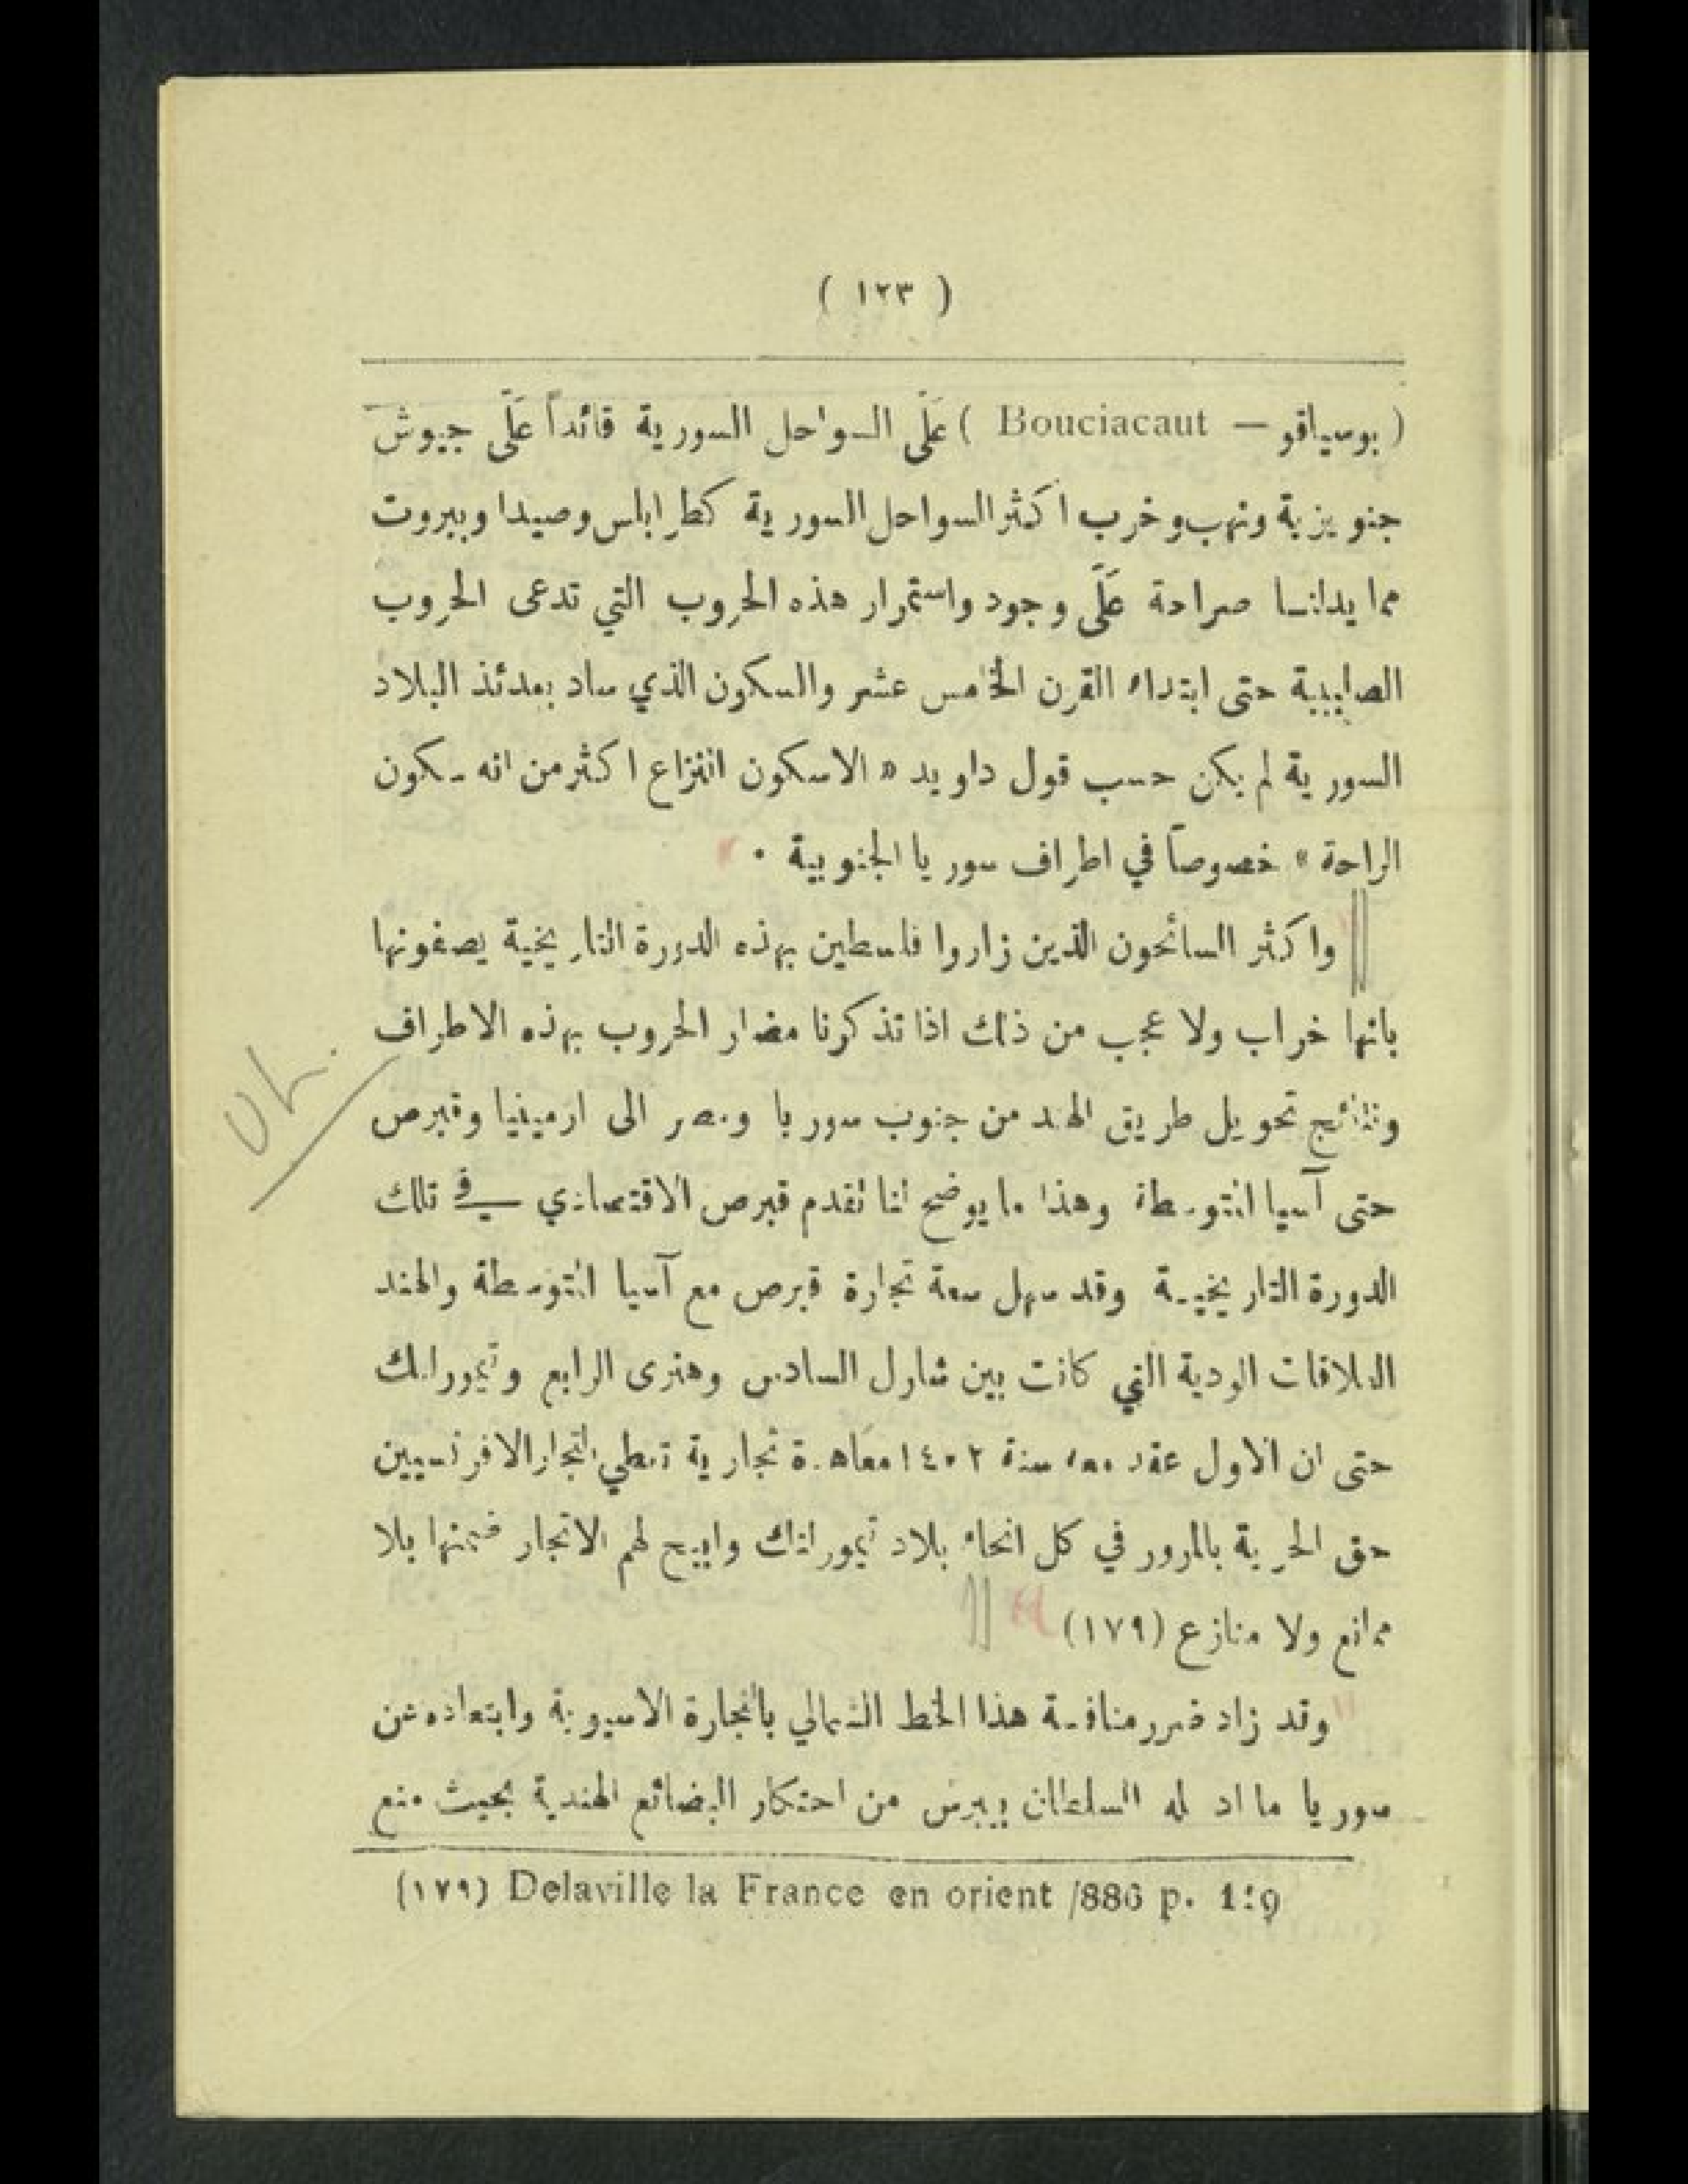 ( ١٢٣ )
( بوسياقو — Bouciacaut ) عَلَى السواحل السورية قائداً عَلَى جيوش
جنويزية ونهب وخرب اكثر السواحل السورية كطرابلس وصيدا وبيروت
مما يدلنا صراحة عَلَى وجود واستمرار هذه الحروب التي تدعى الحروب
الصليبية حتى ابتداء القرن الخامس عشر والسكون الذي ساد بعدئذ البلاد
السورية لم يكن حسب قول داويد « الاسكون انتزاع اكثر من انه سكون
الراحة » خصوصاً في اطراف سوريا الجنوبية .
واكثر السائحون الذين زاروا فلسطين بهذه الدورة التاريخية يصفونها
بانها خراب ولا عجب من ذلك اذا تذكرنا مضار الحروب بهذه الاطراف
ونتائج تحويل طريق الهند من جنوب سوريا ومصر الى ارمينيا وقبرص
حتى آسيا المتوسطة وهذا ما يوضح لنا تقدم قبرص الاقتصادي في تلك
الدورة التاريخية وقد سهل سعة تجارة قبرص مع آسيا المتوسطة والهند
العلاقات الودية التي كانت بين شارل السادس وهنرى الرابع وتيمورلنك
حتى ان الاول عقد معه سنة ١٤٠٢ معاهدة تجارية تعطي التجار الافرنسيين
حق الحرية بالمرور في كل انحاء بلاد تيمورلنك وابيح لهم الاتجار ضمنها بلا
ممانع ولا منازع (١٧٩)
وقد زاد ضرر منافسة هذا الخط الشمالي بالتجارة الاسيوية وابتعاده عن
سوريا ما اد له السلطان بيبرس من احتكار البضائع الهندية بحيث منع
(١٧٩) Delaville la France en orient /886 p.